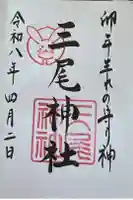 卯年生れの守り神
三尾神社
令和八年四月二日